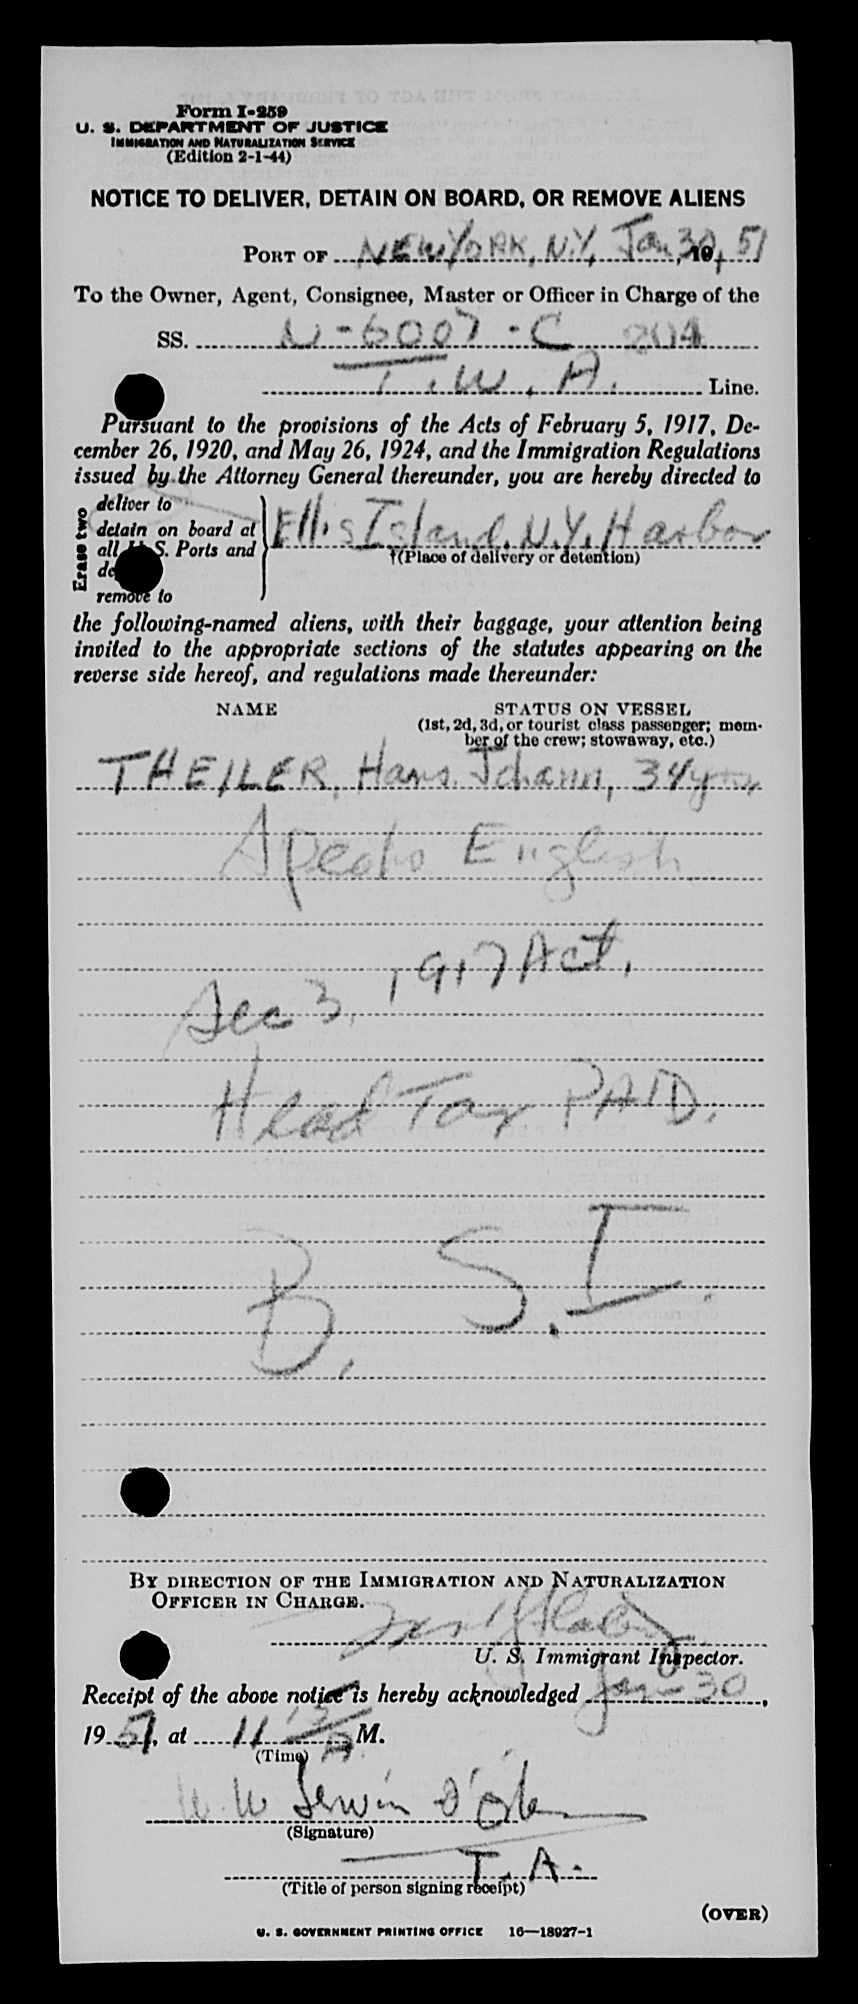 Form I-259
U. S. DEPARTMENT OF JUSTICE
IMMIGRATION AND NATURALIZATION SERVICE
(Edition 2-1-44)
NOTICE TO DELIVER, DETAIN ON BOARD, OR REMOVE ALIENS
PORT OF NEW YORK, N.Y, Jan 30, 1951
To the Owner, Agent, Consignee, Master or Officer in Charge of the
SS. N-6007-C 204
T.W.A. Line.
Pursuant to the provisions of the Acts of February 5, 1917, De-
cember 26, 1920, and May 26, 1924, and the Immigration Regulations
issued by the Attorney General thereunder, you are hereby directed to
Erase two
deliver to
detain on board at
all U. S. Ports and
remove to
Ellis Island, N.Y. Harbor
†(Place of delivery or detention)
the following-named aliens, with their baggage, your attention being
invited to the appropriate sections of the statutes appearing on the
reverse side hereof, and regulations made thereunder:
NAME STATUS ON VESSEL
(1st, 2d, 3d, or tourist class passenger; mem-
ber of the crew; stowaway, etc.)
THEILER, Hans Johann, 34
Speaks English
Sec 3, 1917 Act,
Head Tax PAID.
B. S. I.
BY DIRECTION OF THE IMMIGRATION AND NATURALIZATION
OFFICER IN CHARGE.
U. S. Immigrant Inspector.
Receipt of the above notice is hereby acknowledged Jan 30,
1951, at 11 15 A M.
(Time)
(Signature)
T. A.
(Title of person signing receipt)
(OVER)
U. S. GOVERNMENT PRINTING OFFICE 16—18927-1